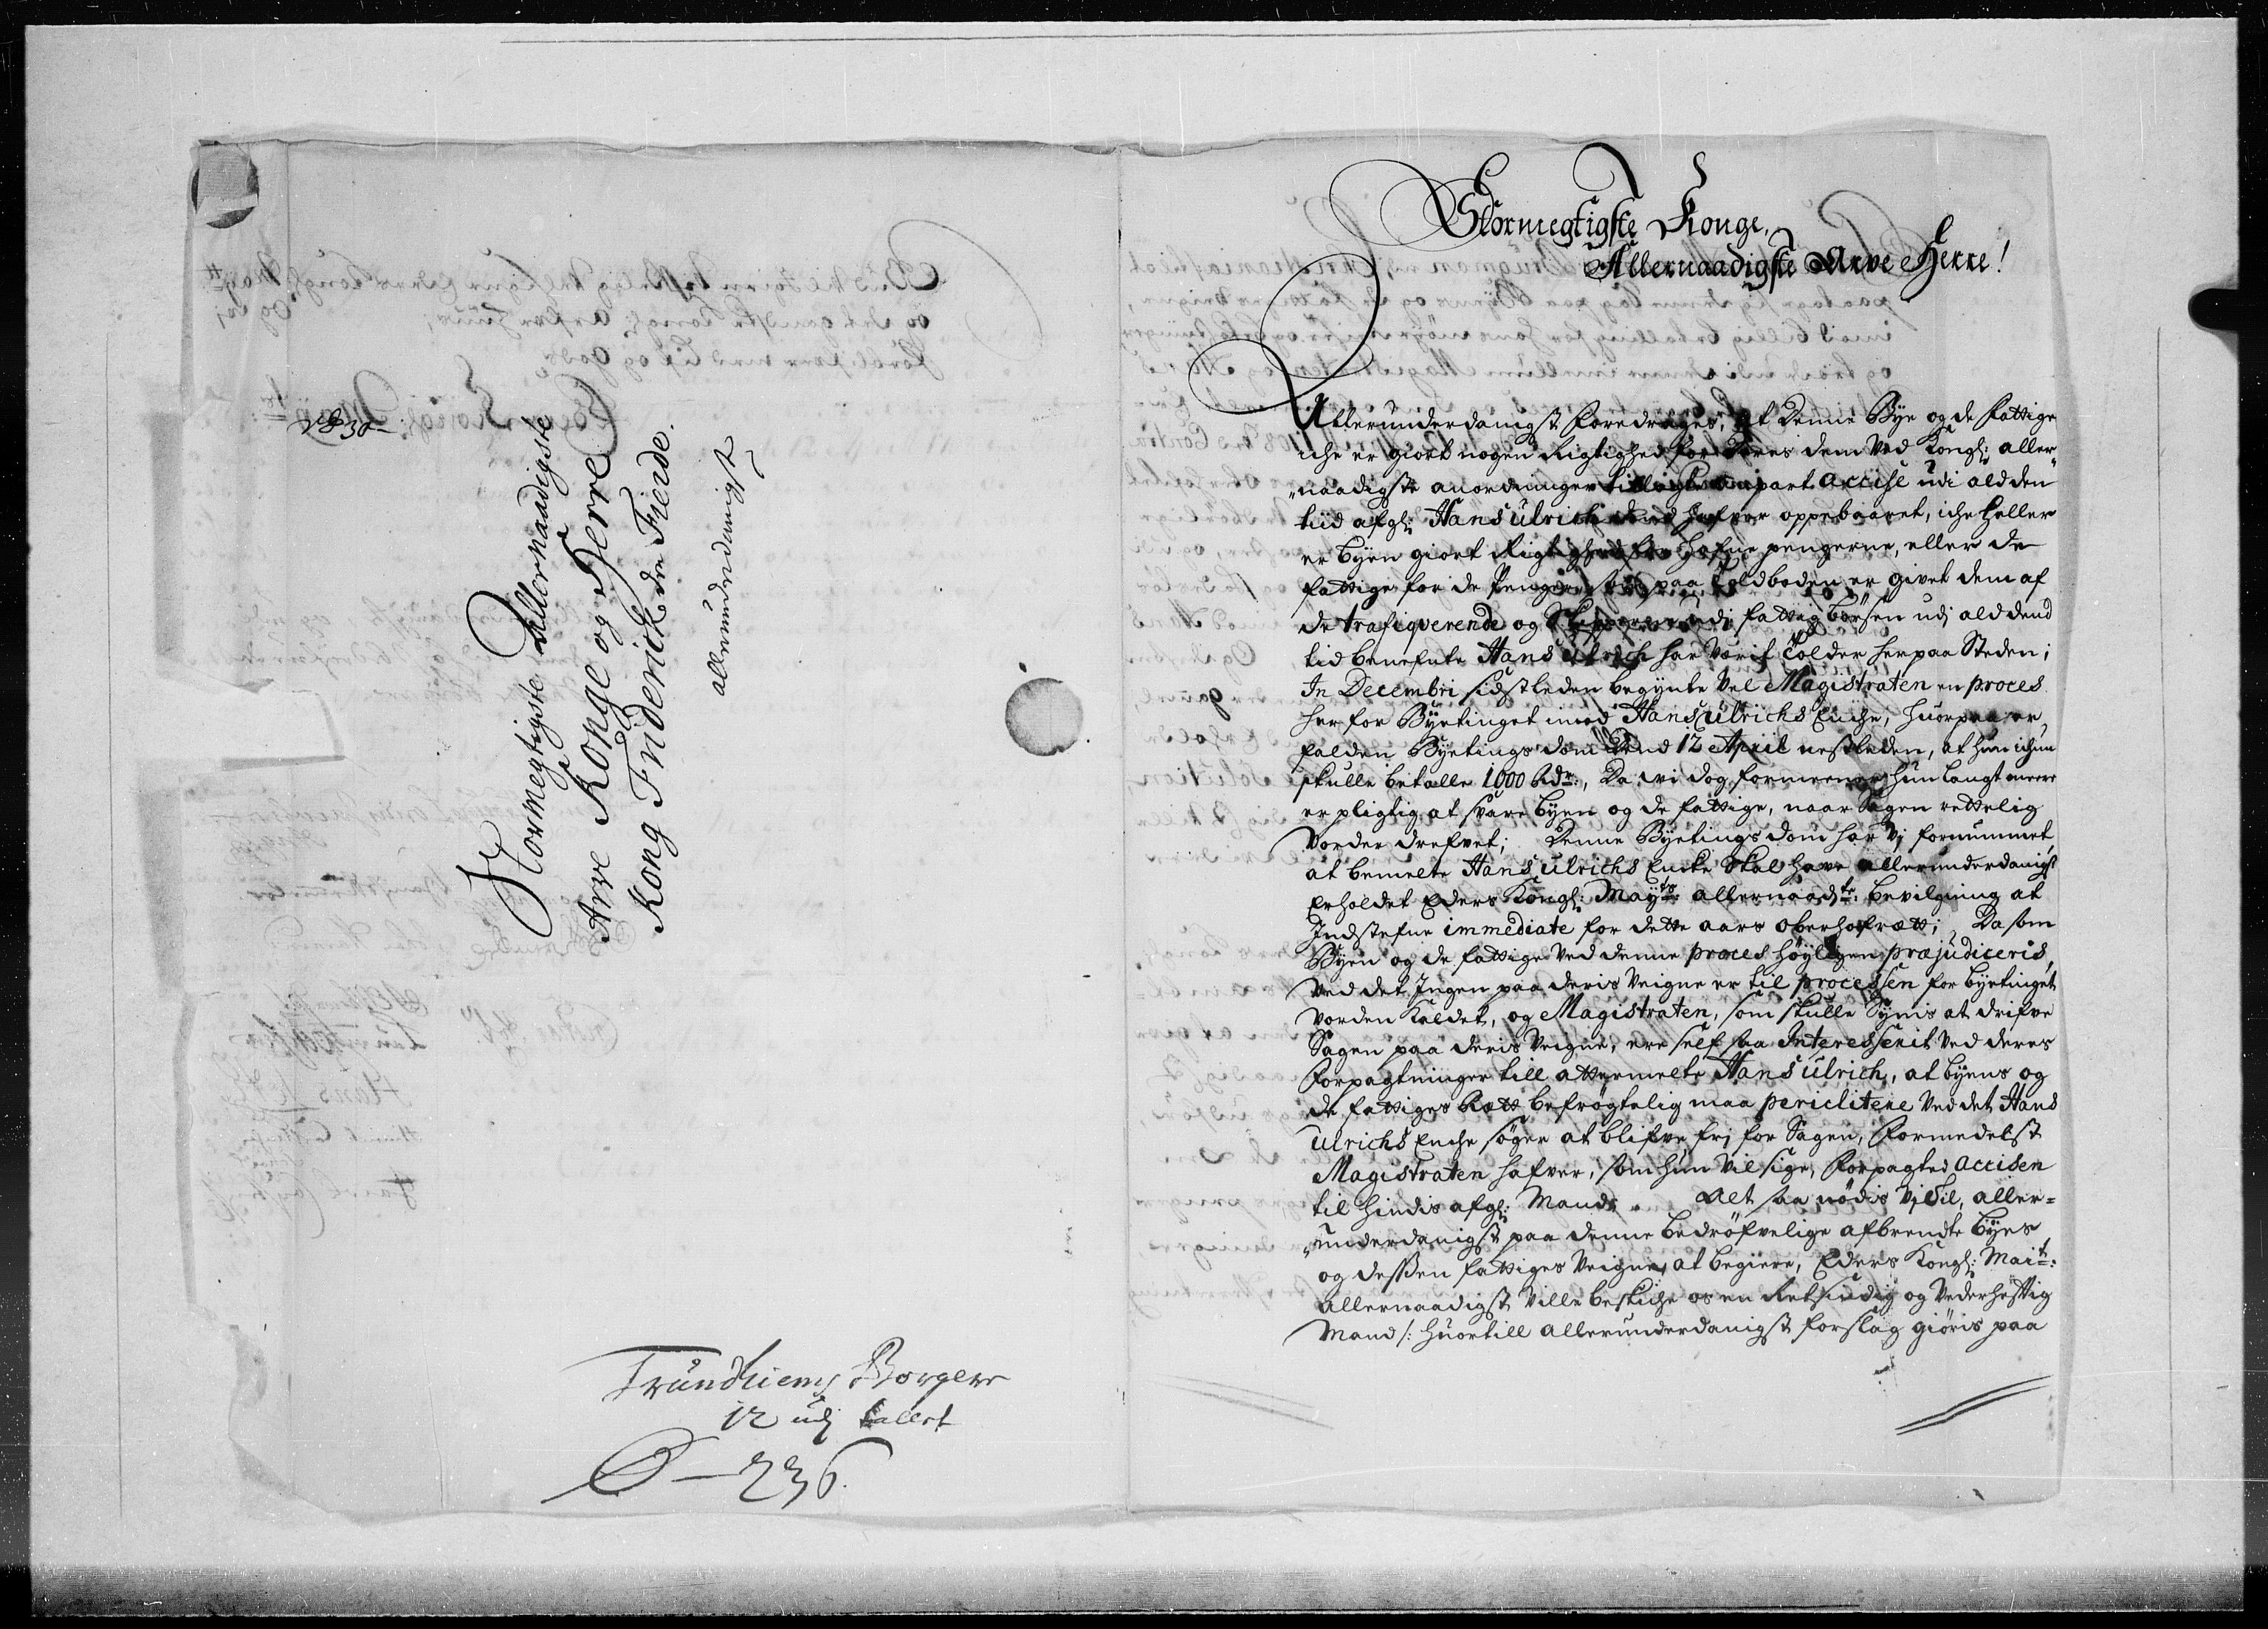 Stormegtigste Allernaadigste
Arve Konge og Herre
Kong Friderich den Fierde.
allerunderdanigst
Trundhiems Borgere
12 udj tallet
236.
Stormegtigste Konge,
Allernaadigste Arve Herre!
Allerunderdanigst Foredrages, At denne Bye og de Fattige
iche er giort nogen Rigtighed for deres dem ved Kongl: aller-
naadigste anordninger tillagde anpart accise udi ald den
tiid afgl: Hans Ulrich dend hafver oppebaaret, iche heller
er byen giort Rigtighed for Hafne pengerne, eller de
fattige for de Penger som paa Toldboden er givet dem af
de trafiqverende og Skippere udj fattig bøssen udj ald dend
tid benefnte Hans Ulrich har verit Tolder her paa Steden;
In Decembri sidstleden begynte vel Magistraten en proces
her for Byetinget imod Hans Ulrichs Enche, huorpaa er
falden Byetings dom dend 12 April nestleden, at hun ichun
skulle betalle 1000 Rdr:, Da vi dog formeener hun langt meere
er pligtig at svare byen og de fattige, naar Sagen rettelig
vorder drefvet; Denne Byetings dom har Vj fornummet,
at bemelte Hans Ulrichs Encke skal have allerunderdanigst
Erholdet Eders Kongl: Mayts: allernaadste: bevilgning at
Indstefne immediate for dette aars oberhofrett; Da som
Byen og de fattige ved denne proces høyligen præjudiceris,
ved det Ingen paa deris Veigne er til processen for byetinget
vorden kaldet, og Magistraten, som skulle Synis at drifve
Sagen paa deris Veigne, ere self saa Interesserit ved deres
Forpagtninger till attermelte Hans Ulrich, at byens og
de fattiges Rett befrøgtelig maa periclitere ved det Hans
Ulrichs Enche søger at blifve frj for Sagen, formedelst
Magistraten hafver, som hun vil sige, Forpagted accisen
til hindis afgl: Mand. Alt saa nødis Vj til, aller=
underdanigst paa denne bedrøfvelige afbrendte byes
og dessen fattiges Veigne, at begiere, Eders Kongl: Mait:
allernaadigst ville beskiche os en Retsindig og Vederheftig
Mand /: huortill allerunderdanigst forslag giøris paa